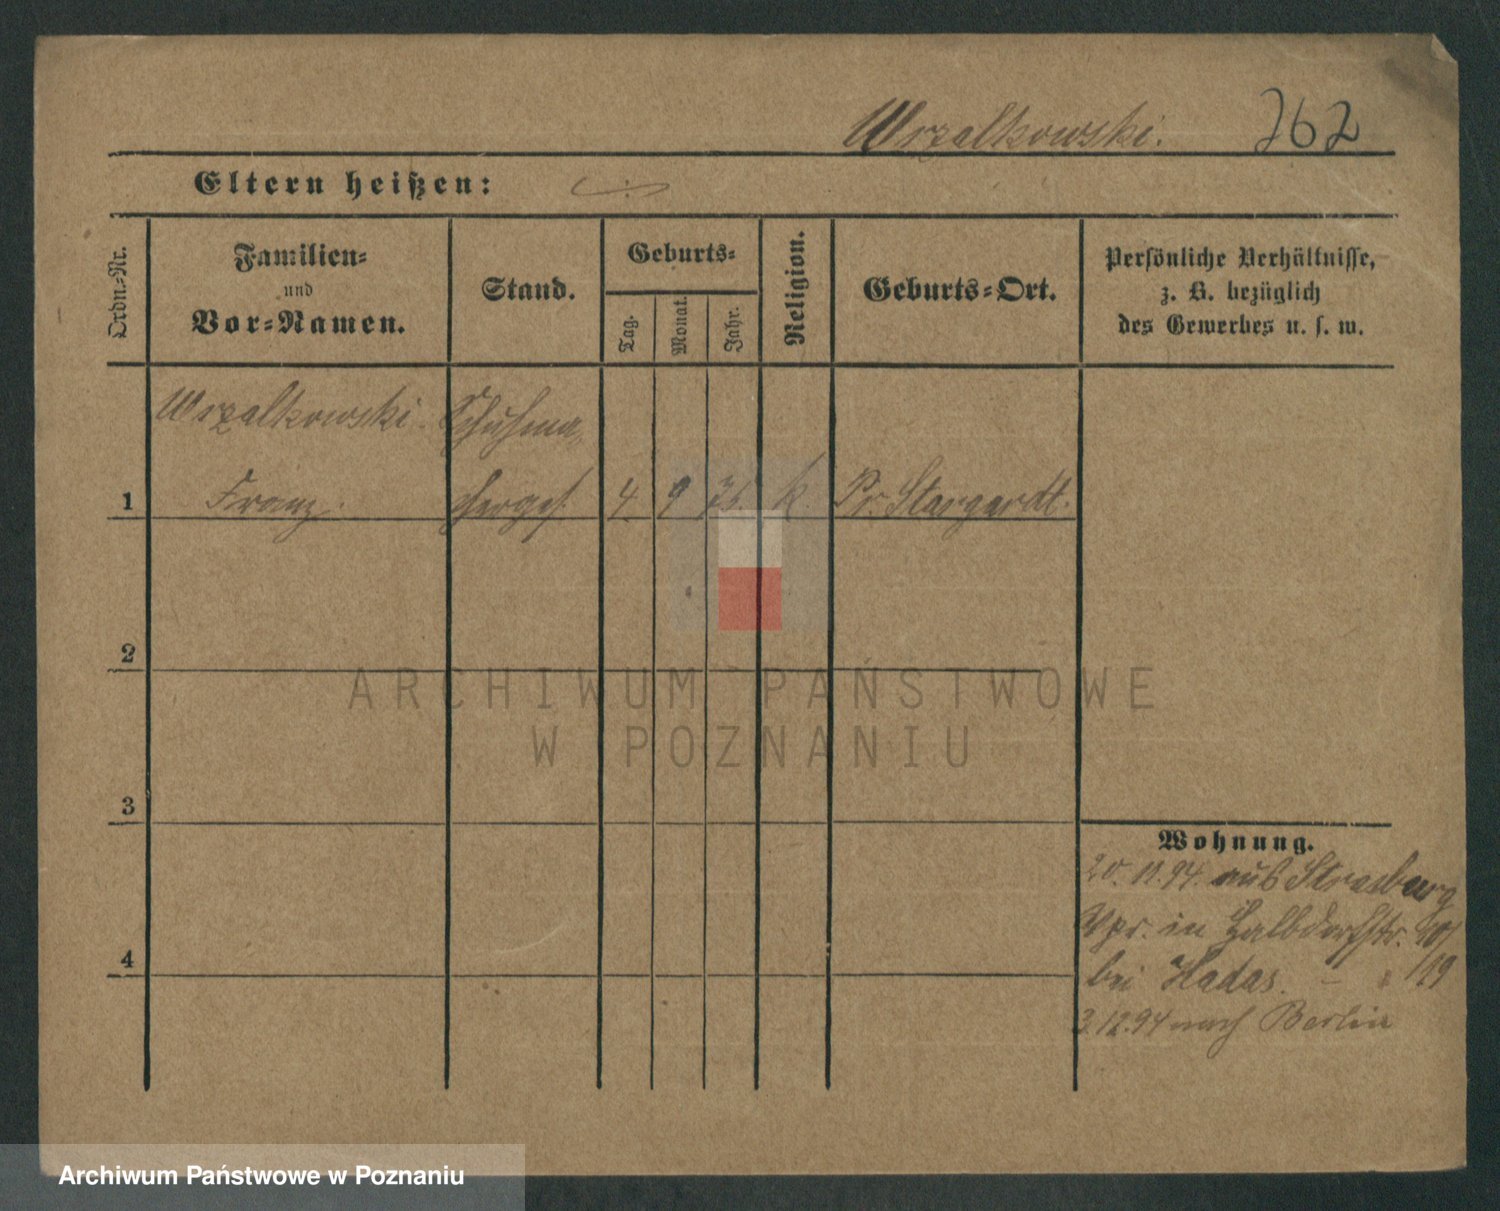 Wrzalkowski. 762
Eltern heißen:
Ordn.-Nr.
Familien-
und
Vor-Namen.
Stand.
Geburts-
Tag.
Monat.
Jahr.
Religion.
Geburts-Ort.
Persönliche Verhältnisse,
z. B. bezüglich
des Gewerbes u. s. w.
Wrzalkowski Schuhma-
1 Franz. cherges. 4. 9 k. Pr. Stargardt.
2
3
4
Wohnung.
20. 11. 94. aus Strasburg
Wpr. in Halbdorfstr.
bei Hadas. 119
3.12.94 nach Berlin
ARCHIWUM PAŃSTWOWE
W POZNANIU
Archiwum Państwowe w Poznaniu